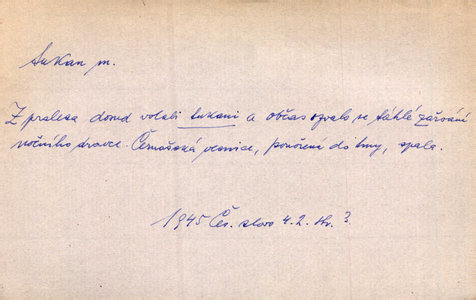 tukan m.
Z pralesa dosud volali tukani a občas ozvalo se táhlé
nočního dravce. Černošská vesnice, ponořená do tmy, spala.
1945 Čes. slovo 4.2. str. 3